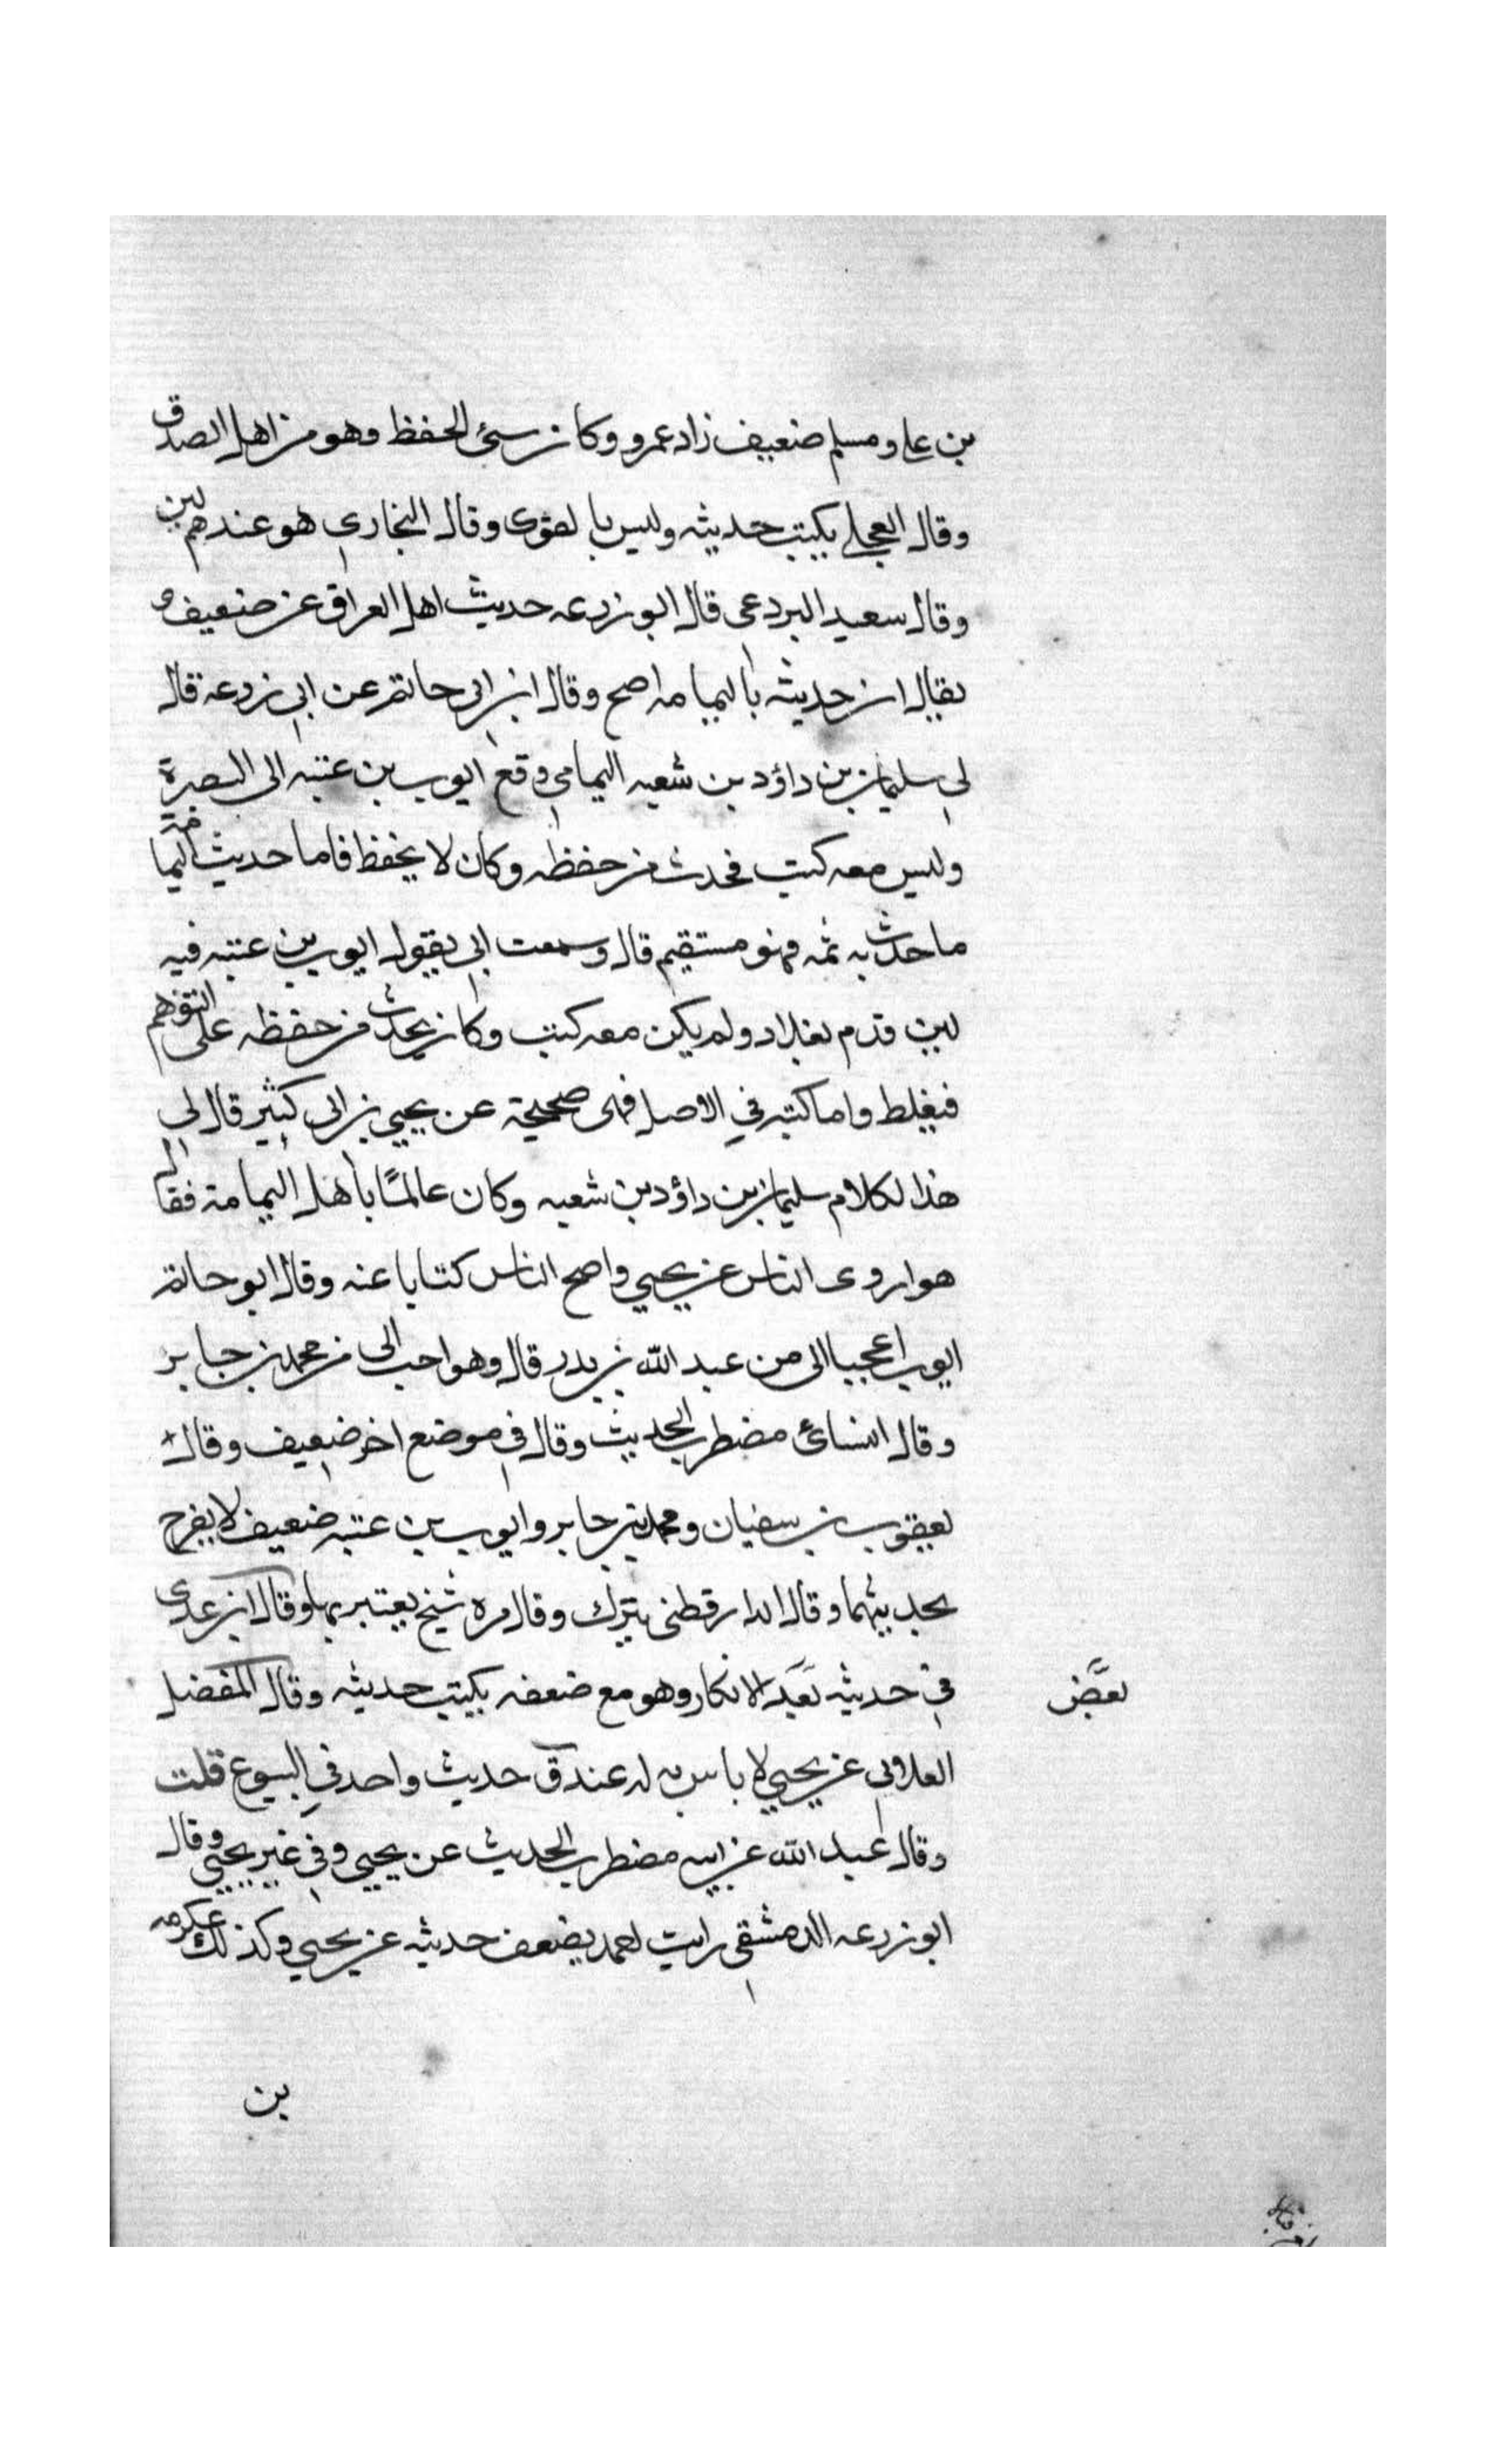 بن علي ومسلم ضعيف زاد عمرو وكان سيئ الحفظ وهو من اهل الصدق
وقال العجلي يكتب حديثه وليس بالقوى وقال البخاري هو عندهم لين
وقال سعيد البردعى قال ابو زرعه حديث اهل العراق عنه ضعيف و
يقال ان حديثه باليمامه اصح وقال ابن ابى حاتم عن ابي زرعة قال
لي سليمان بن داؤد بن شعبه اليمامي وقع ايوب بن عتبه الى البصرة
وليس معه كتب فحدث من حفظه وكان لا يحفظ فاما حديث اليمامة
ما حدث به ثمه فهو مستقيم قال وسمعت ابي يقول ايوب بن عتبه فيه
لين قدم بغداد ولم يكن معه كتب وكان يحدث من حفظه على التوهم
فيغلط واما كتبه في الاصل فهى صحيحة عن يحيى بن ابى كثير قال لي
هذا الكلام سليمان بن داؤد بن شعبه وكان عالمًا باهل اليمامة فقال
هو اروى الناس عن يحيي واصح الناس كتابا عنه وقال ابو حاتم
ايوب اعجب الى من عبد الله بن بدر قال وهو احب الى من محمد بن جابر
وقال النسائى مضطرب الحديث وقال في موضع اخر ضعيف وقال
يعقوب بن سفيان ومحمد بن جابر وايوب بن عتبه ضعيف لا يفرح
بحديثهما وقال الدارقطنى يترك وقال مره شيخ يعتبر بها وقال ابن عدى
في حديثه بعد الانكار وهو مع ضعفه يكتب حديثه وقال المفضل
بعض
الغلابي عن يحيي لا باس به له عند ق حديث واحد في البيوع قلت
وقال عبد الله عن ابيه مضطرب الحديث عن يحيى وفي غير يحيى وقال
ابو زرعه الدمشقي رايت احمد يضعف حديثه عن يحيي وكذلك عكرمه
بن